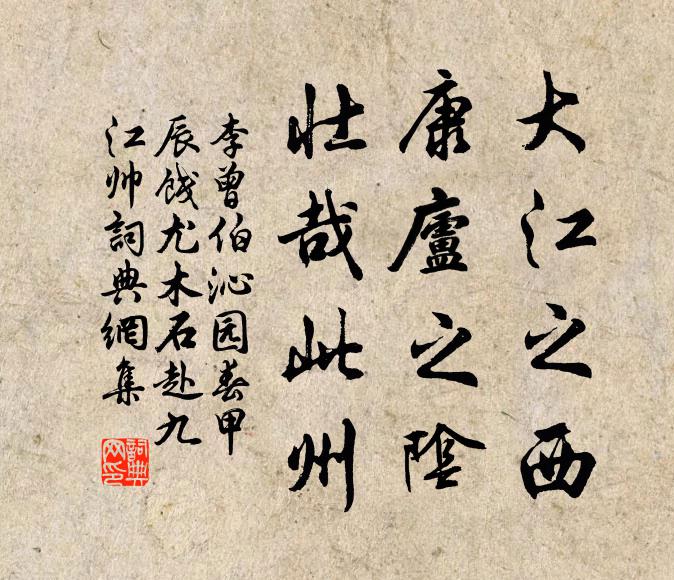 大江之西
康廬之陰
壯哉此州
李曾伯沁园春甲
辰餞尤木石赴九
江帅詞典網集
詞典
网印